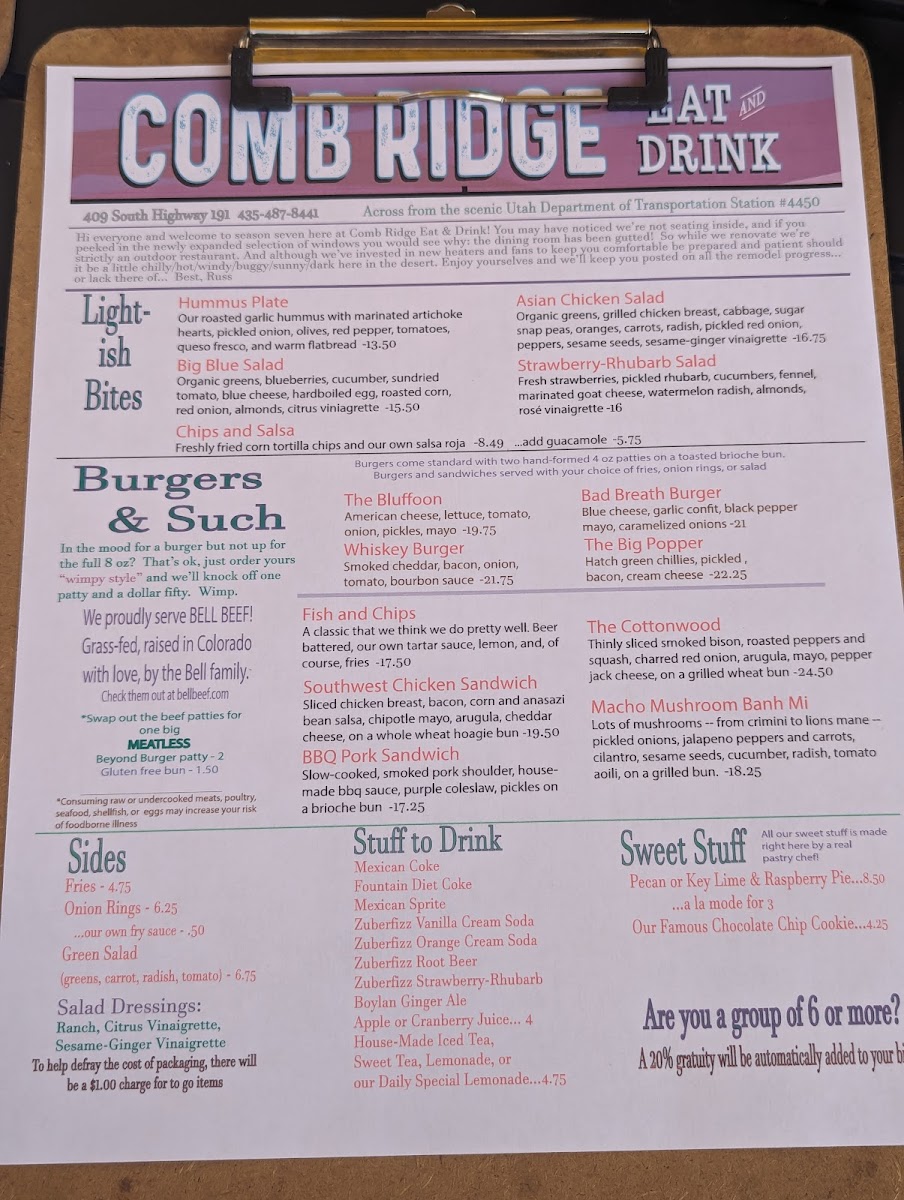 COMB RIDGE EAT AND DRINK
409 South Highway 191 435-487-8441 Across from the scenic Utah Department of Transportation Station #4450
Hi everyone and welcome to season seven here at Comb Ridge Eat & Drink! You may have noticed we're not seating inside, and if you
peeked in the newly expanded selection of windows you would see why: the dining room has been gutted! So while we renovate we're
strictly an outdoor restaurant. And although we've invested in new heaters and fans to keep you comfortable be prepared and patient should
it be a little chilly/hot/windy/buggy/sunny/dark here in the desert. Enjoy yourselves and we'll keep you posted on all the remodel progress...
or lack there of... Best, Russ
Light-
ish
Bites
Hummus Plate
Our roasted garlic hummus with marinated artichoke
hearts, pickled onion, olives, red pepper, tomatoes,
queso fresco, and warm flatbread -13.50
Big Blue Salad
Organic greens, blueberries, cucumber, sundried
tomato, blue cheese, hardboiled egg, roasted corn,
red onion, almonds, citrus viniagrette -15.50
Asian Chicken Salad
Organic greens, grilled chicken breast, cabbage, sugar
snap peas, oranges, carrots, radish, pickled red onion,
peppers, sesame seeds, sesame-ginger vinaigrette -16.75
Strawberry-Rhubarb Salad
Fresh strawberries, pickled rhubarb, cucumbers, fennel,
marinated goat cheese, watermelon radish, almonds,
rosé vinaigrette -16
Chips and Salsa
Freshly fried corn tortilla chips and our own salsa roja -8.49 ...add guacamole -5.75
Burgers
& Such
In the mood for a burger but not up for
the full 8 oz? That's ok, just order yours
"wimpy style" and we'll knock off one
patty and a dollar fifty. Wimp.
We proudly serve BELL BEEF!
Grass-fed, raised in Colorado
with love, by the Bell family.
Check them out at bellbeef.com
*Swap out the beef patties for
one big
MEATLESS
Beyond Burger patty - 2
Gluten free bun - 1.50
*Consuming raw or undercooked meats, poultry,
seafood, shellfish, or eggs may increase your risk
of foodborne illness
Burgers come standard with two hand-formed 4 oz patties on a toasted brioche bun.
Burgers and sandwiches served with your choice of fries, onion rings, or salad
The Bluffoon
American cheese, lettuce, tomato,
onion, pickles, mayo -19.75
Whiskey Burger
Smoked cheddar, bacon, onion,
tomato, bourbon sauce -21.75
Bad Breath Burger
Blue cheese, garlic confit, black pepper
mayo, caramelized onions -21
The Big Popper
Hatch green chillies, pickled ,
bacon, cream cheese -22.25
Fish and Chips
A classic that we think we do pretty well. Beer
battered, our own tartar sauce, lemon, and, of
course, fries -17.50
Southwest Chicken Sandwich
Sliced chicken breast, bacon, corn and anasazi
bean salsa, chipotle mayo, arugula, cheddar
cheese, on a whole wheat hoagie bun -19.50
BBQ Pork Sandwich
Slow-cooked, smoked pork shoulder, house-
made bbq sauce, purple coleslaw, pickles on
a brioche bun -17.25
The Cottonwood
Thinly sliced smoked bison, roasted peppers and
squash, charred red onion, arugula, mayo, pepper
jack cheese, on a grilled wheat bun -24.50
Macho Mushroom Banh Mi
Lots of mushrooms -- from crimini to lions mane --
pickled onions, jalapeno peppers and carrots,
cilantro, sesame seeds, cucumber, radish, tomato
aoili, on a grilled bun. -18.25
Sides
Fries - 4.75
Onion Rings - 6.25
...our own fry sauce - .50
Green Salad
(greens, carrot, radish, tomato) - 6.75
Salad Dressings:
Ranch, Citrus Vinaigrette,
Sesame-Ginger Vinaigrette
To help defray the cost of packaging, there will
be a $1.00 charge for to go items
Stuff to Drink
Mexican Coke
Fountain Diet Coke
Mexican Sprite
Zuberfizz Vanilla Cream Soda
Zuberfizz Orange Cream Soda
Zuberfizz Root Beer
Zuberfizz Strawberry-Rhubarb
Boylan Ginger Ale
Apple or Cranberry Juice... 4
House-Made Iced Tea,
Sweet Tea, Lemonade, or
our Daily Special Lemonade...4.75
Sweet Stuff
All our sweet stuff is made
right here by a real
pastry chef!
Pecan or Key Lime & Raspberry Pie...8.50
...a la mode for 3
Our Famous Chocolate Chip Cookie...4.25
Are you a group of 6 or more?
A 20% gratuity will be automatically added to your bi